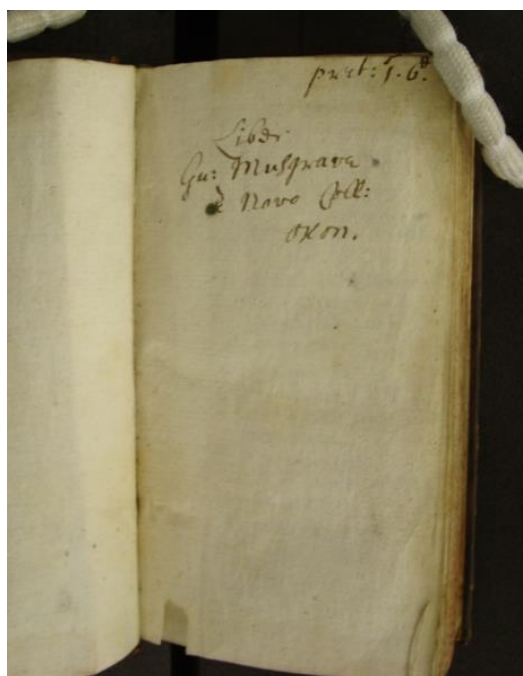 pret: 1s. 6d.
Liber
Gu: Musgrave
è Novo Coll:
oxon.